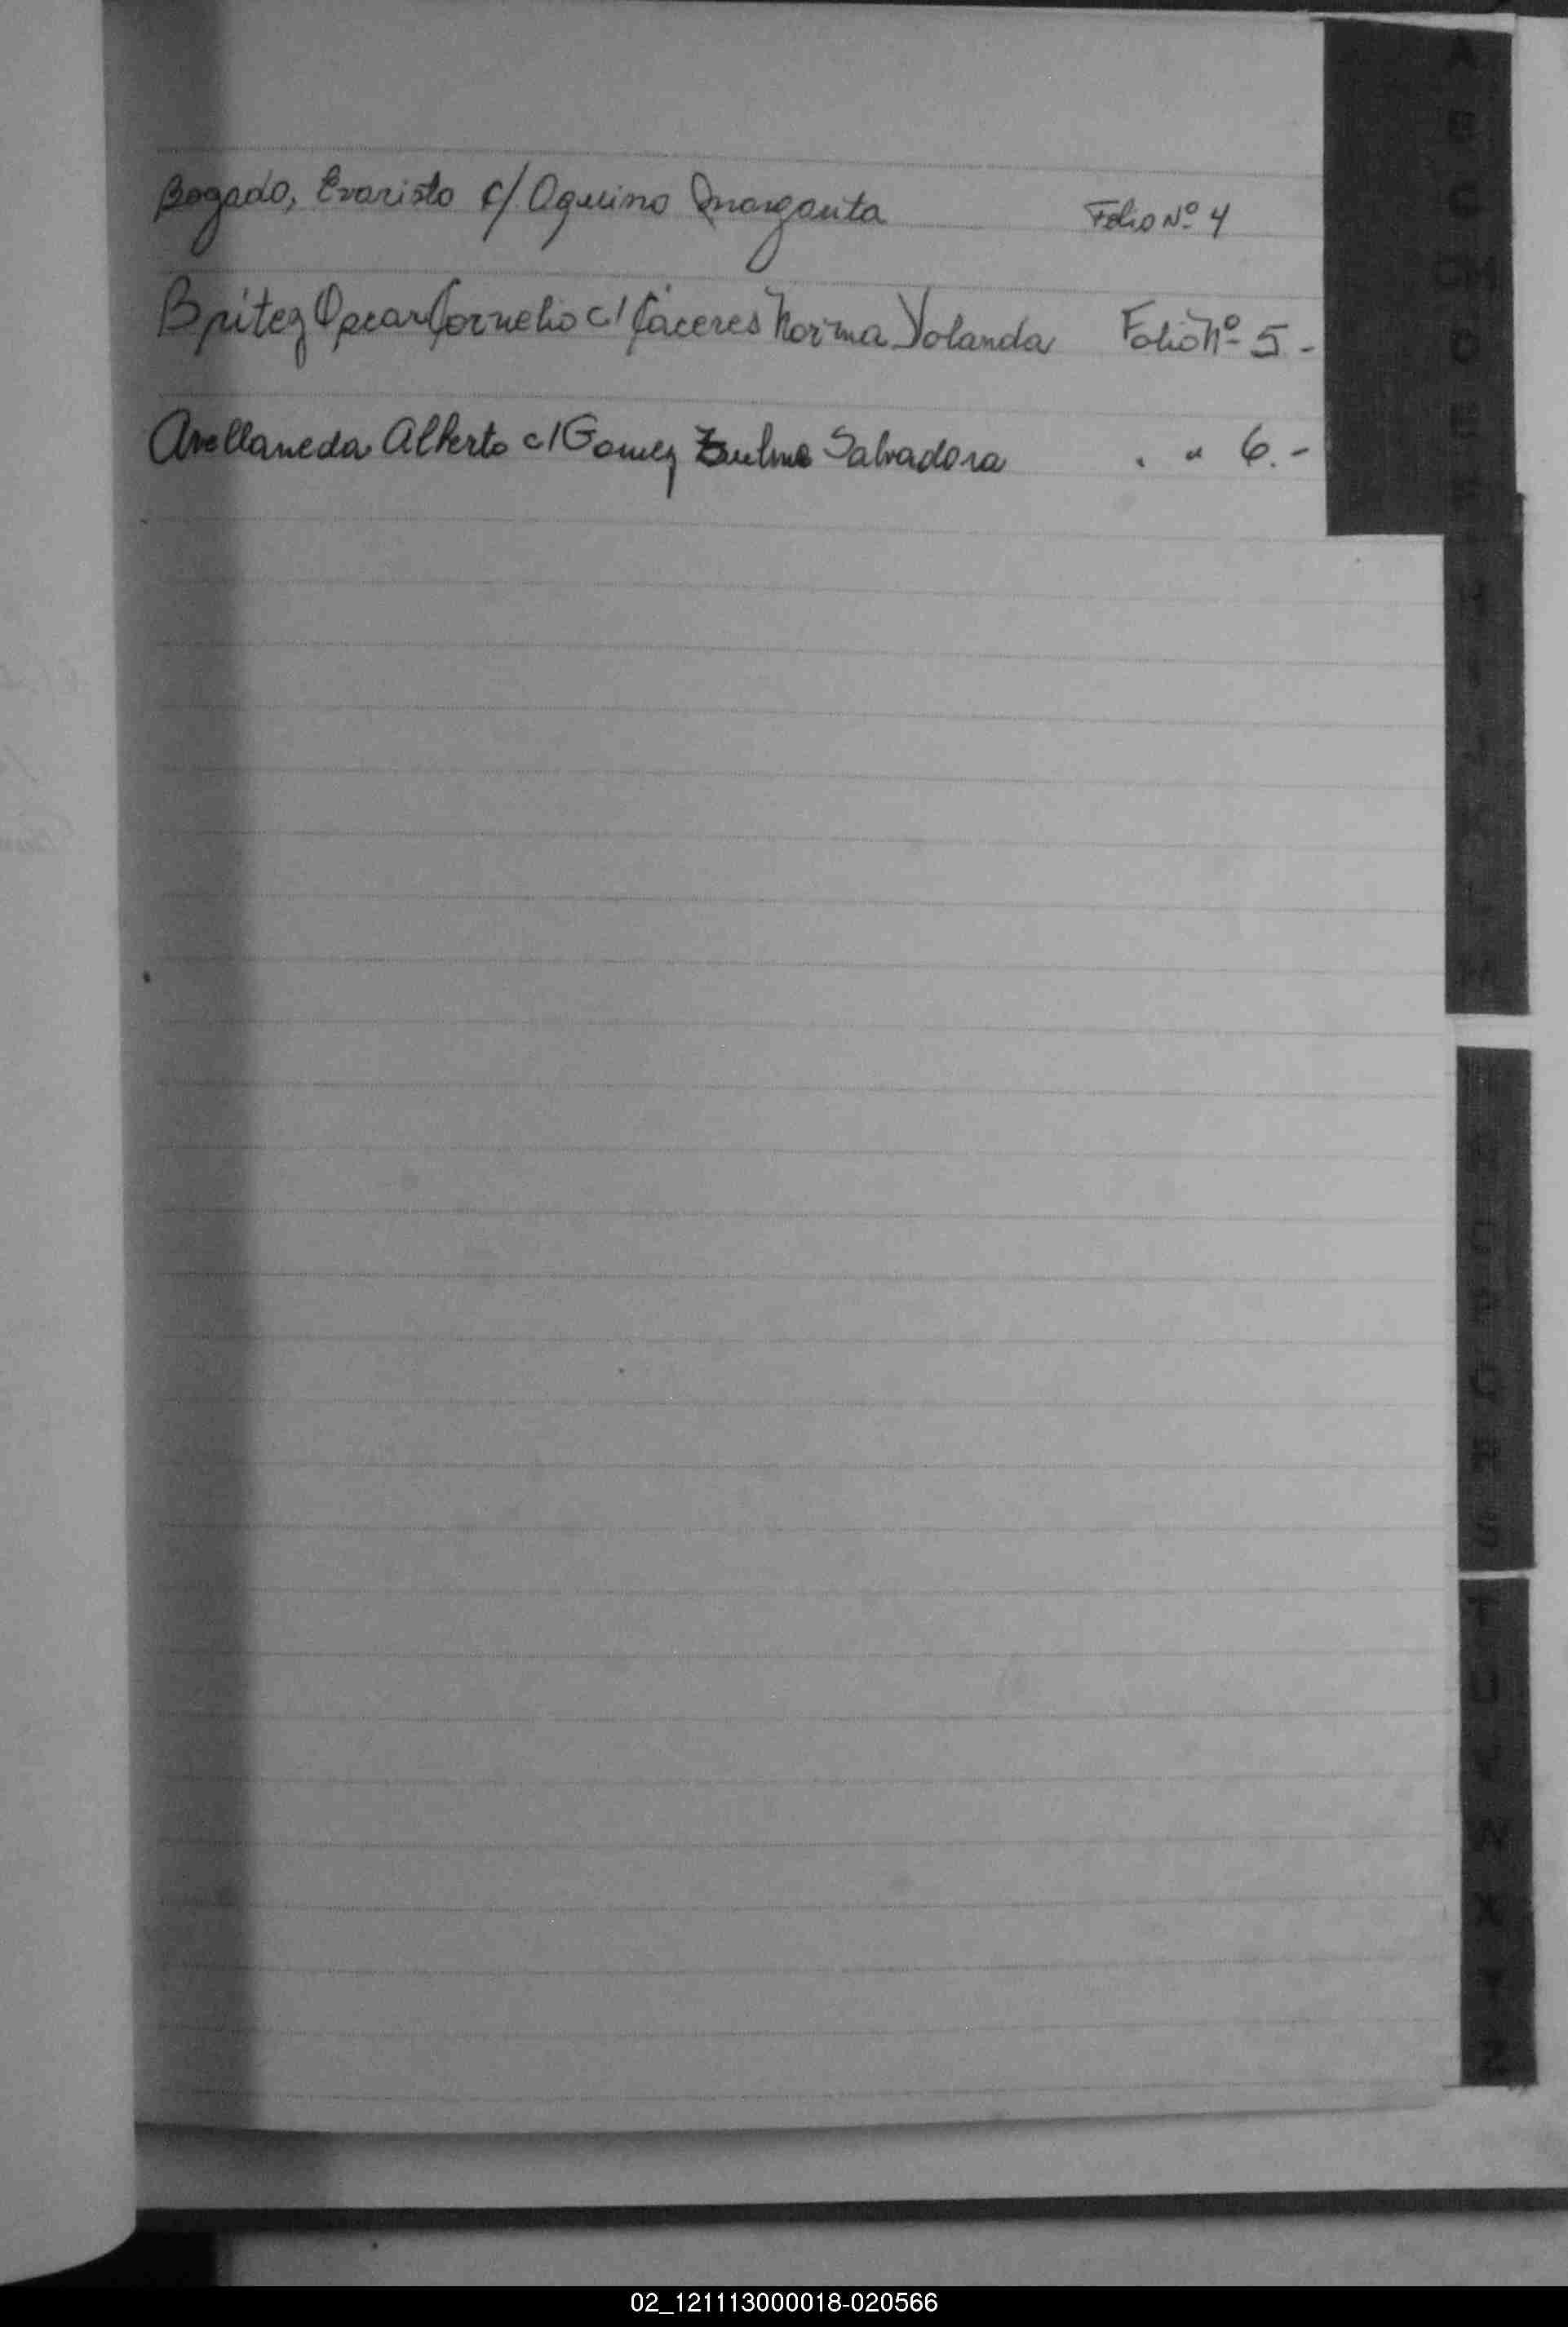 Bogado, Evaristo c/ Aquino Margarita Folio Nº 4
Britez Oscar Cornelio c/ Cáceres Norma Yolanda Folio Nº 5 -
Avellaneda Alberto c/ Gomez Zulma Salvadora " " 6.-
A
B
C
CH
D
E
F
H
I
O
P
Q
R
S
T
U
V
W
X
Y
Z
02_121113000018-020566